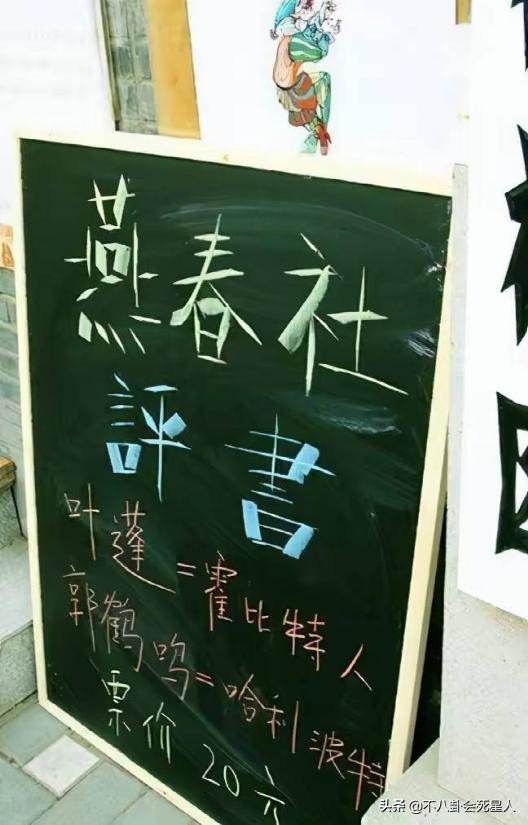 燕春社
評書
叶蓬=霍比特人
郭鹤鸣=哈利波特
票价20元
头条 @不八卦会死星人